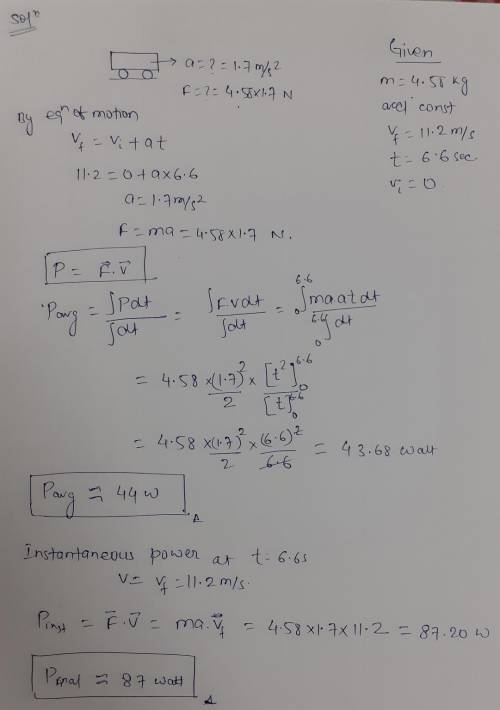 Solⁿ
Given
a = ? = 1.7 m/s²
F = ? = 4.58×1.7 N
m = 4.58 kg
accl const
By eqⁿ of motion
v_f = 11.2 m/s
V_f = V_i + at
t = 6.6 sec
11.2 = 0 + a×6.6
v_i = 0
a = 1.7 m/s²
F = ma = 4.58×1.7 N.
P = F⃗.V⃗
Pavg = ∫Pdt / ∫dt = ∫Fvdt / ∫dt = ₀∫⁶·⁶ maatdt / ₀∫⁶·⁶ dt
= 4.58 × (1.7)²/2 × [t²]₀⁶·⁶ / [t]₀⁶·⁶
= 4.58 × (1.7)²/2 × (6.6)²/6.6 = 43.68 watt
Pavg ≈ 44 W
Instantaneous power at t = 6.6s
V = V_f = 11.2 m/s.
Pinst = F⃗.V⃗ = ma.V⃗_f = 4.58×1.7×11.2 = 87.20 W
Pfinal ≈ 87 watt